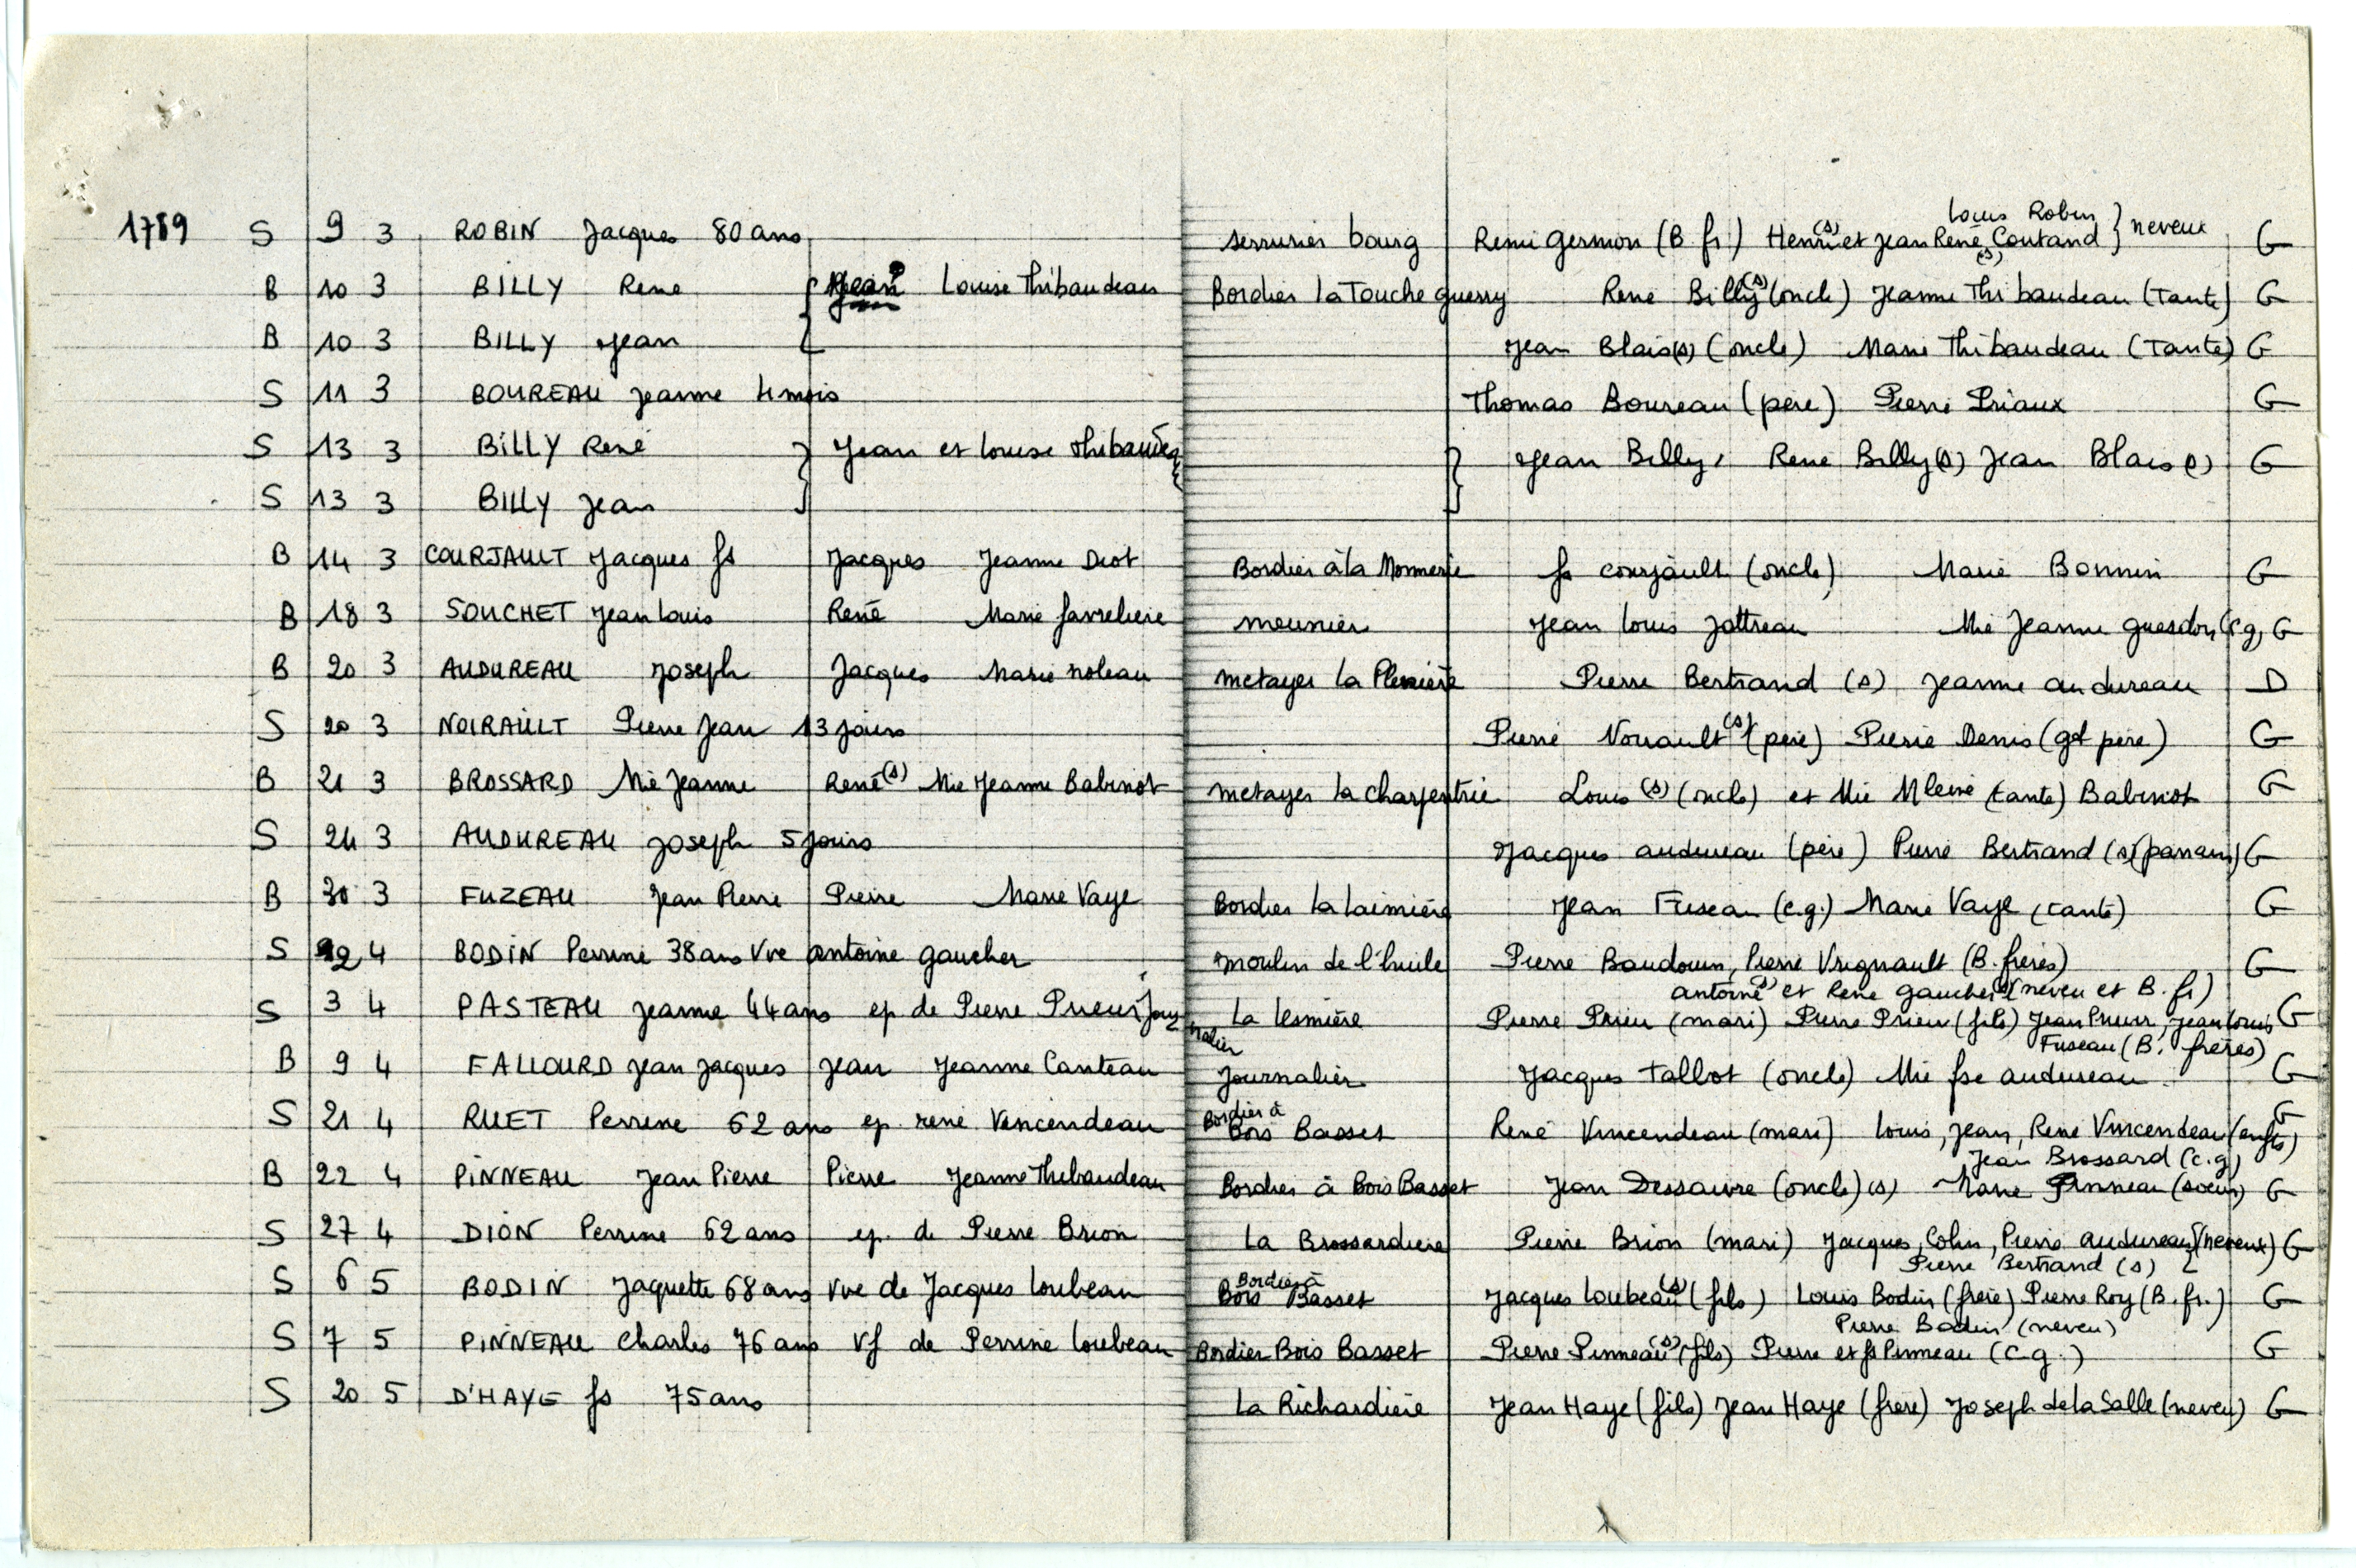 1789 S 9 3 ROBIN Jacques 80 ans serrurier bourg Remi Germon (B. fr.) Henri (s) et Jean René (s) Coutand Louis Robin } neveux G
B 10 3 BILLY René { Jean Louise Thibaudeau Bordier la Touche guerry René Billy (s) (oncle) Jeanne Thibaudeau (Tante) G
B 10 3 BILLY Jean Jean Blais (s) (oncle) Marie Thibaudeau (Tante) G
S 11 3 BOUREAU Jeanne 4 mois Thomas Boureau (père) Pierre Priaux G
S 13 3 BILLY René } Jean et Louise Thibaudeau } Jean Billy, René Billy (s) Jean Blais (s) G
S 13 3 BILLY Jean
B 14 3 COURJAULT Jacques fs Jacques Jeanne Diot Bordier à la Monnerie fs courjault (oncle) Marie Bonnin G
B 18 3 SOUCHET Jean Louis René Marie favreliere meunier Jean Louis Jottreau Mie Jeanne guesdon (c g) G
B 20 3 AUDUREAU Joseph Jacques Marie noleau metayer la Plenière Pierre Bertrand (s) Jeanne audureau D
S 20 3 NOIRAULT Pierre Jean 13 jours Pierre Noirault (s) (père) Pierre Denis (gd père) G
B 21 3 BROSSARD Mie Jeanne René (s) Mie Jeanne Babinot metayer la charpentrie Louis (s) (oncle) et Mie Mleine (tante) Babinot G
S 24 3 AUDUREAU Joseph 5 jours Jacques audureau (père) Pierre Bertrand (s) (parrain) G
B 30 3 FUZEAU Jean Pierre Pierre Marie Vaye Bordier la laimière Jean Fuseau (c.g.) Marie Vaye (tante) G
S 2 4 BODIN Perrine 38 ans Vve antoine gaucher moulin de l'huile Pierre Baudouin, Pierre Vrignault (B. frères) G
antoine (s) et René gaucher (s) (neveu et B. fr)
S 3 4 PASTEAU Jeanne 44 ans ep de Pierre Prieur journalier La lesmière Pierre Prieu (mari) Pierre Prieu (fils) Jean Prieur, Jean Louis G
Fuseau (B. frères)
B 9 4 FALLOURD Jean Jacques Jean Jeanne Canteau Journalier Jacques Tallbot (oncle) Mie fse audureau G
S 21 4 RUET Perrine 62 ans ep. rené Vincendeau Bordier à Bois Basset René Vincendeau (mari) Louis, Jean, René Vincendeau (enfts) G
Jean Brossard (c.g)
B 22 4 PINNEAU Jean Pierre Pierre Jeanne Thibaudeau Bordier à Bois Basset Jean Dessaivre (oncle) (s) Marie Pinneau (soeur) G
S 27 4 DION Perrine 62 ans ep. de Pierre Brion La Brossardiere Pierre Brion (mari) Jacques, Colin, Pierre audureau (neveux) G
Pierre Bertrand (s)
S 6 5 BODIN Jaquette 68 ans Vve de Jacques Loubeau Bordier à Bois Basset Jacques Loubeau (s) (fils) Louis Bodin (frère) Pierre Roy (B. fr.) G
Pierre Bodin (neveu)
S 7 5 PINNEAU Charles 76 ans Vf de Perrine Loubeau Bordier Bois Basset Pierre Pinneau (s) (fils) Pierre et fs Pinneau (c g.) G
S 20 5 D'HAYE fs 75 ans La Richardière Jean Haye (fils) Jean Haye (frère) Joseph de la Salle (neveu) G